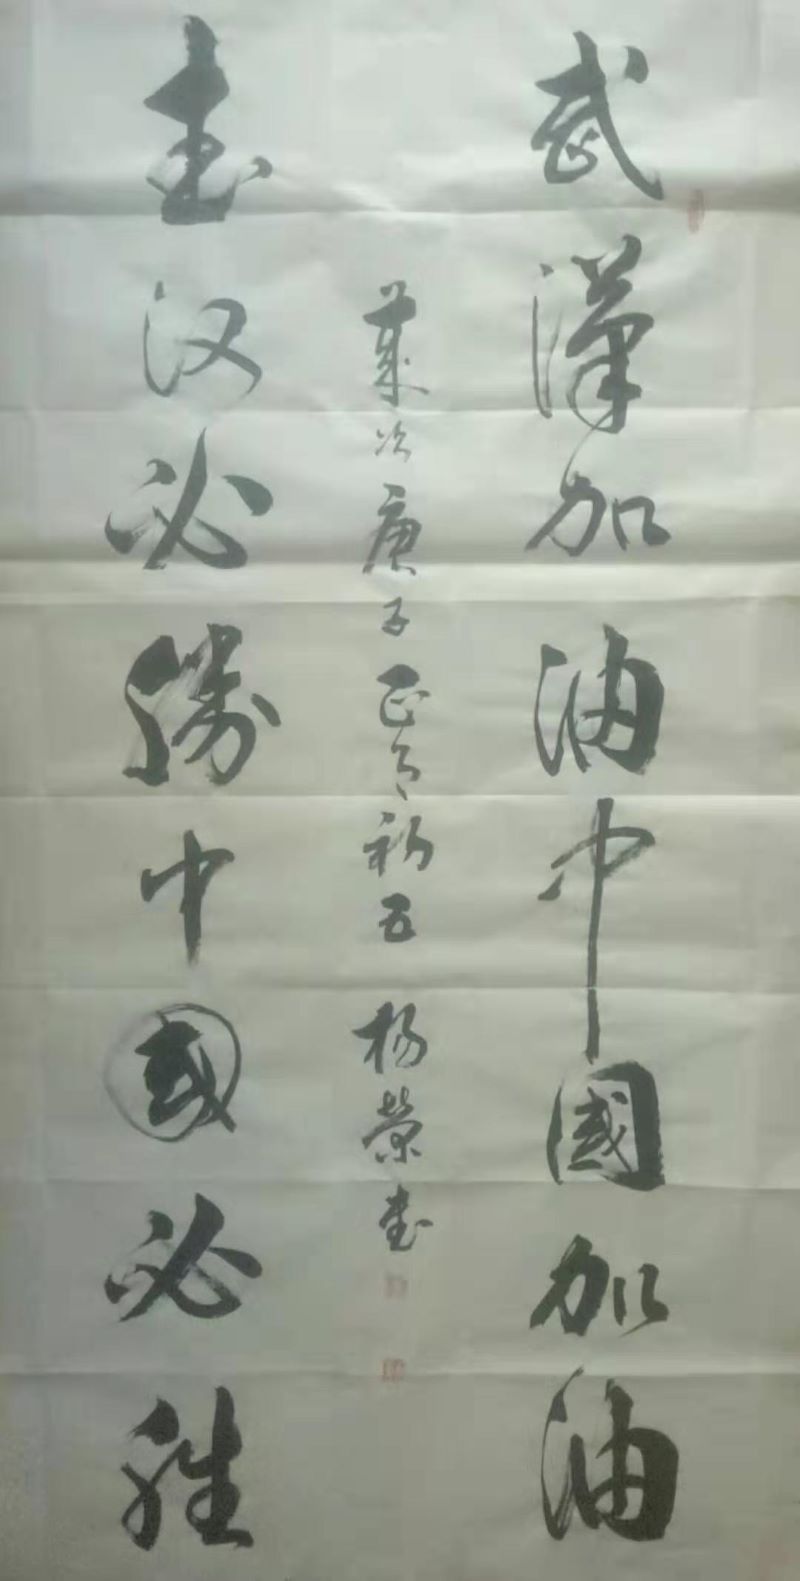 武漢加油中國加油
歲次庚子正月初五 楊榮書
武汉必勝中國必胜